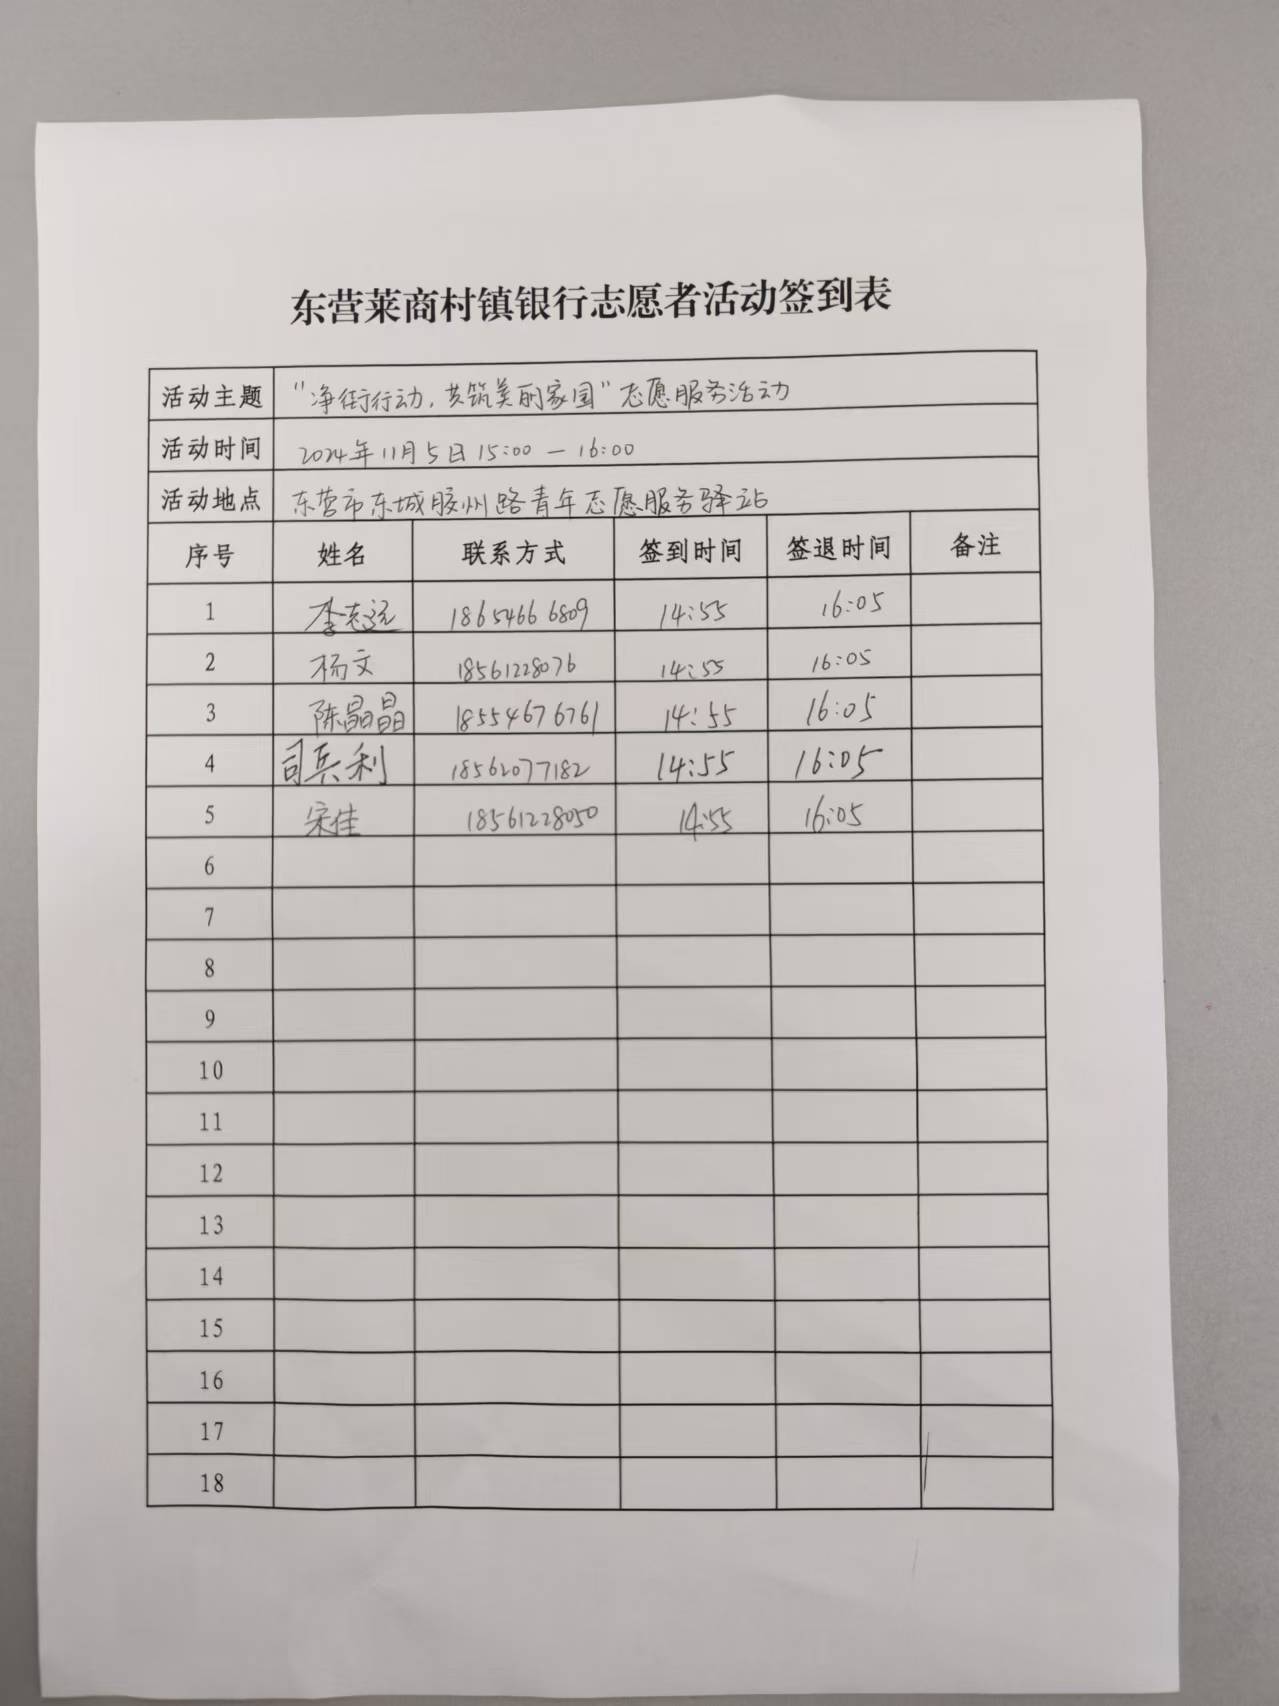 东营莱商村镇银行志愿者活动签到表
活动主题 "净街行动,共筑美丽家园"志愿服务活动
活动时间 2024年11月5日15:00—16:00
活动地点 东营市东城胶州路青年志愿服务驿站
序号 姓名 联系方式 签到时间 签退时间 备注
1 李志远 18654666809 14:55 16:05
2 杨文 18561228076 14:55 16:05
3 陈晶晶 18554676761 14:55 16:05
4 司兵利 18562077182 14:55 16:05
5 宋佳 18561228050 14:55 16:05
6
7
8
9
10
11
12
13
14
15
16
17
18